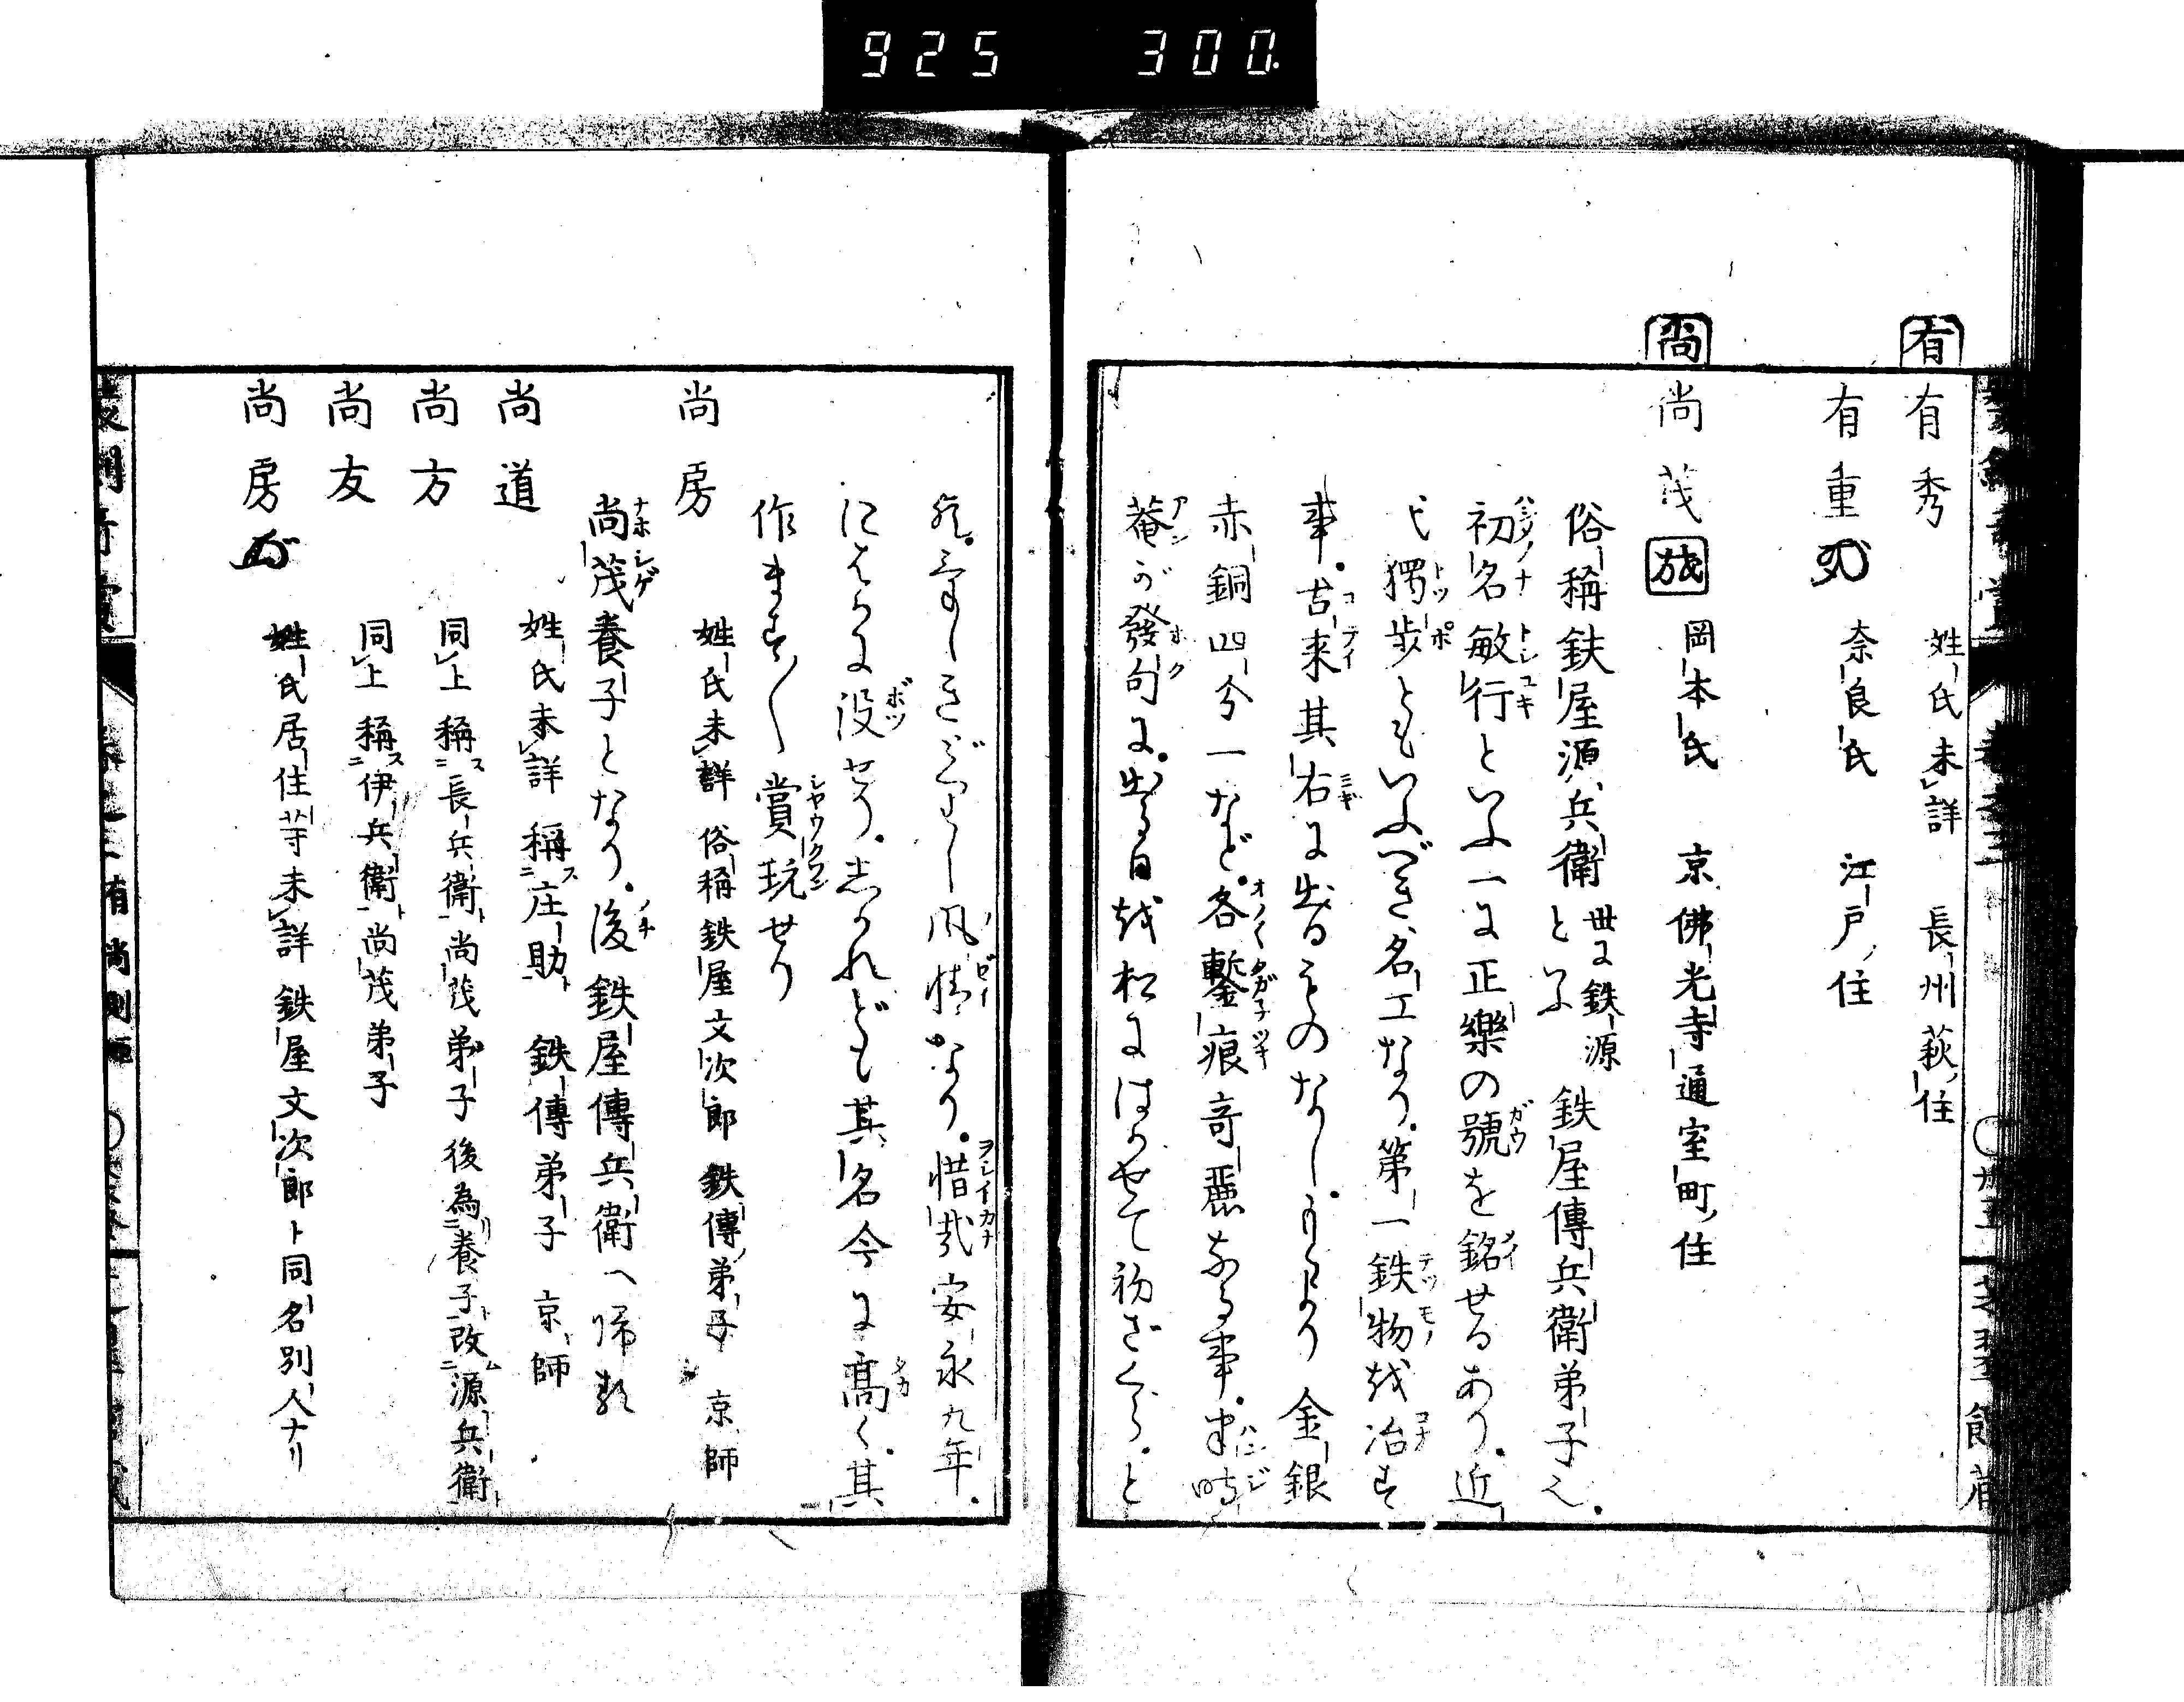 925 300.
有
有秀 姓氏未詳 長州萩ノ住
有重 奈良氏 江戸ノ住
尚
尚茂 茂 岡本氏 京佛光寺通室町ノ住
俗稱鉄屋源兵衛といふ 世に鉄源 鉄屋傳兵衛弟子也。
初名敏行といふ一に正樂の號を銘せるあり。近
代獨歩ともいふべき名工なり。第一鉄物を冶す
事。古来其右に出るものなし。 金銀
赤銅四分一など。各鏨痕奇麗なる事。半時
菴が發句に。出る日を松にはらせて初ざくら。と
風情なり。惜哉安永九年。
にはかに没せり。しかれども其名今に高く。其
作ます〱賞玩せり
尚房 姓氏未詳 俗稱鉄屋文次郎 鉄傳ノ弟子 京師
尚茂養子となり。後鉄屋傳兵衛へ帰
尚道 姓氏未詳 稱ス二庄助ト一 鉄傳弟子 京師
尚方 同上 稱ス二長兵衛ト一 尚茂弟子 後為リ二養子ト一改ム二源兵衛ト一
尚友 同上 稱ス二伊兵衛ト一 尚茂弟子
尚房 姓氏居住等未詳 鉄屋文次郎ト同名別人ナリ
有 尚